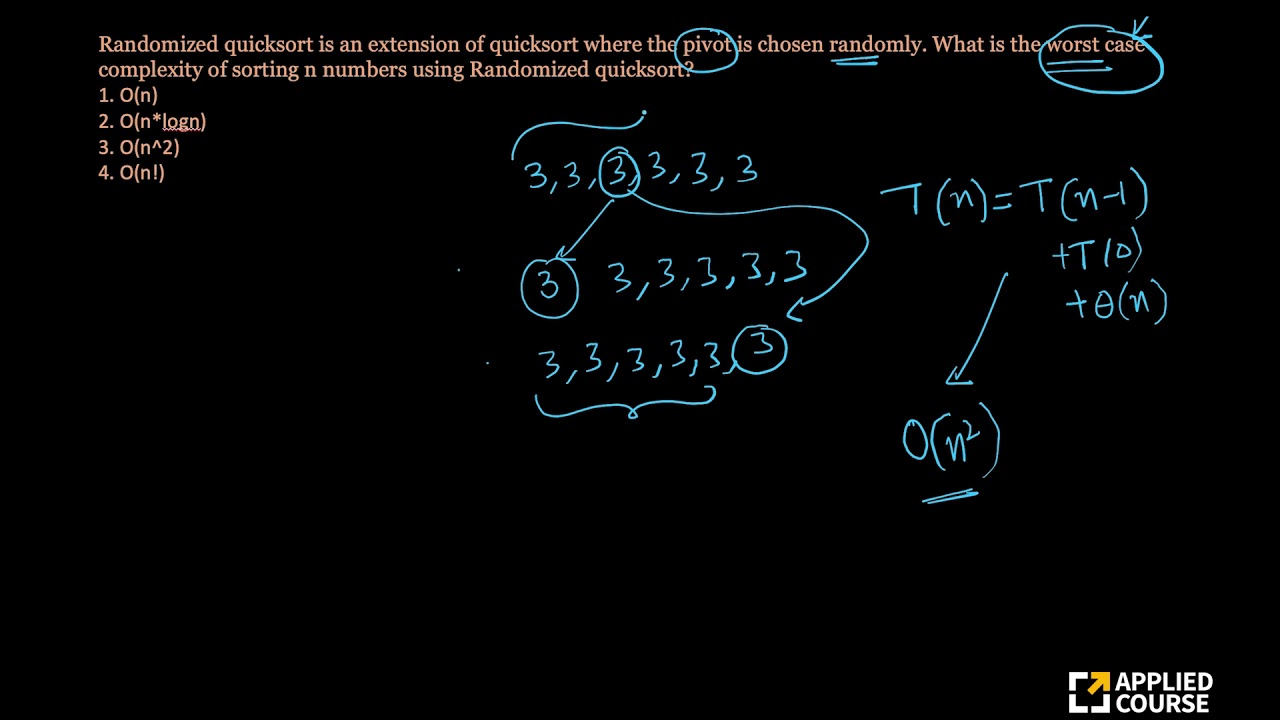 Randomized quicksort is an extension of quicksort where the pivot is chosen randomly. What is the worst case
complexity of sorting n numbers using Randomized quicksort?
1. O(n)
2. O(n*logn)
3. O(n^2)
4. O(n!)
3, 3, 3, 3, 3, 3
T(n) = T(n-1)
+ T(0)
+ θ(n)
3 3, 3, 3, 3, 3
3, 3, 3, 3, 3, 3
O(n²)
APPLIED
COURSE